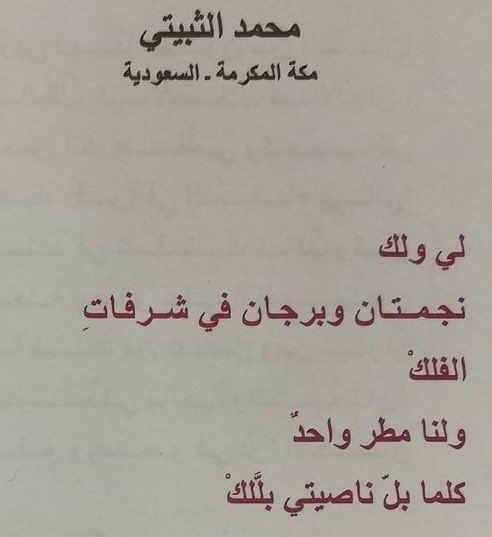 محمد الثبيتي
مكة المكرمة - السعودية
لي ولك
نجمـتـان وبرجـان في شـرفـاتِ
الفلكْ
ولنا مطر واحدٌ
كلما بلّ ناصيتي بلَّلكْ